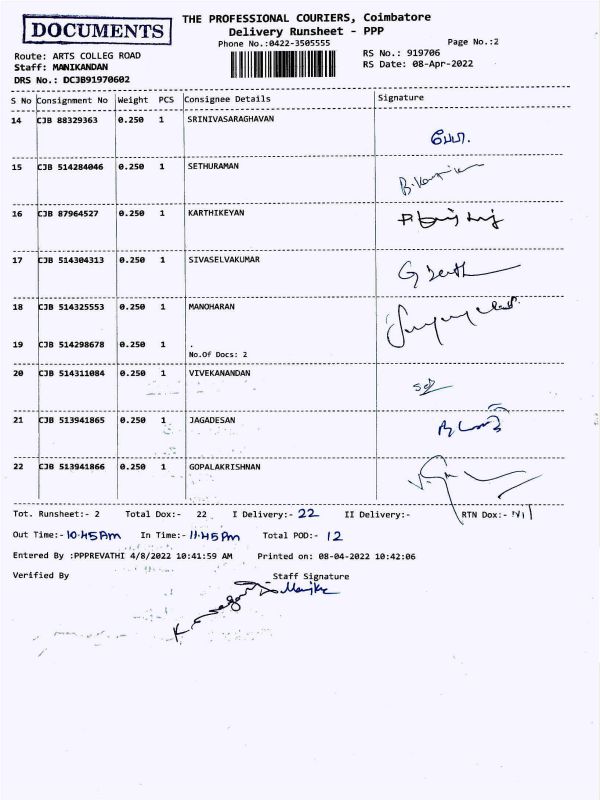 DOCUMENTS
THE PROFESSIONAL COURIERS, Coimbatore
Delivery Runsheet - PPP
Phone No.:0422-3505555
Page No.:2
Route: ARTS COLLEG ROAD
RS No.: 919706
Staff: MANIKANDAN
RS Date: 08-Apr-2022
DRS No.: DCJB91970602
S No Consignment No Weight PCS Consignee Details Signature
14 CJB 88329363 0.250 1 SRINIVASARAGHAVAN
15 CJB 514284046 0.250 1 SETHURAMAN
16 CJB 87964527 0.250 1 KARTHIKEYAN
17 CJB 514304313 0.250 1 SIVASELVAKUMAR
18 CJB 514325553 0.250 1 MANOHARAN
19 CJB 514298678 0.250 1 .
No.Of Docs: 2
20 CJB 514311084 0.250 1 VIVEKANANDAN
21 CJB 513941865 0.250 1 JAGADESAN
22 CJB 513941866 0.250 1 GOPALAKRISHNAN
Tot. Runsheet:- 2 Total Dox:- 22 I Delivery:- 22 II Delivery:- RTN Dox:-
Out Time:- 10.45 Am In Time:- 11.45 Pm Total POD:- 12
Entered By :PPPREVATHI 4/8/2022 10:41:59 AM Printed on: 08-04-2022 10:42:06
Verified By Staff Signature